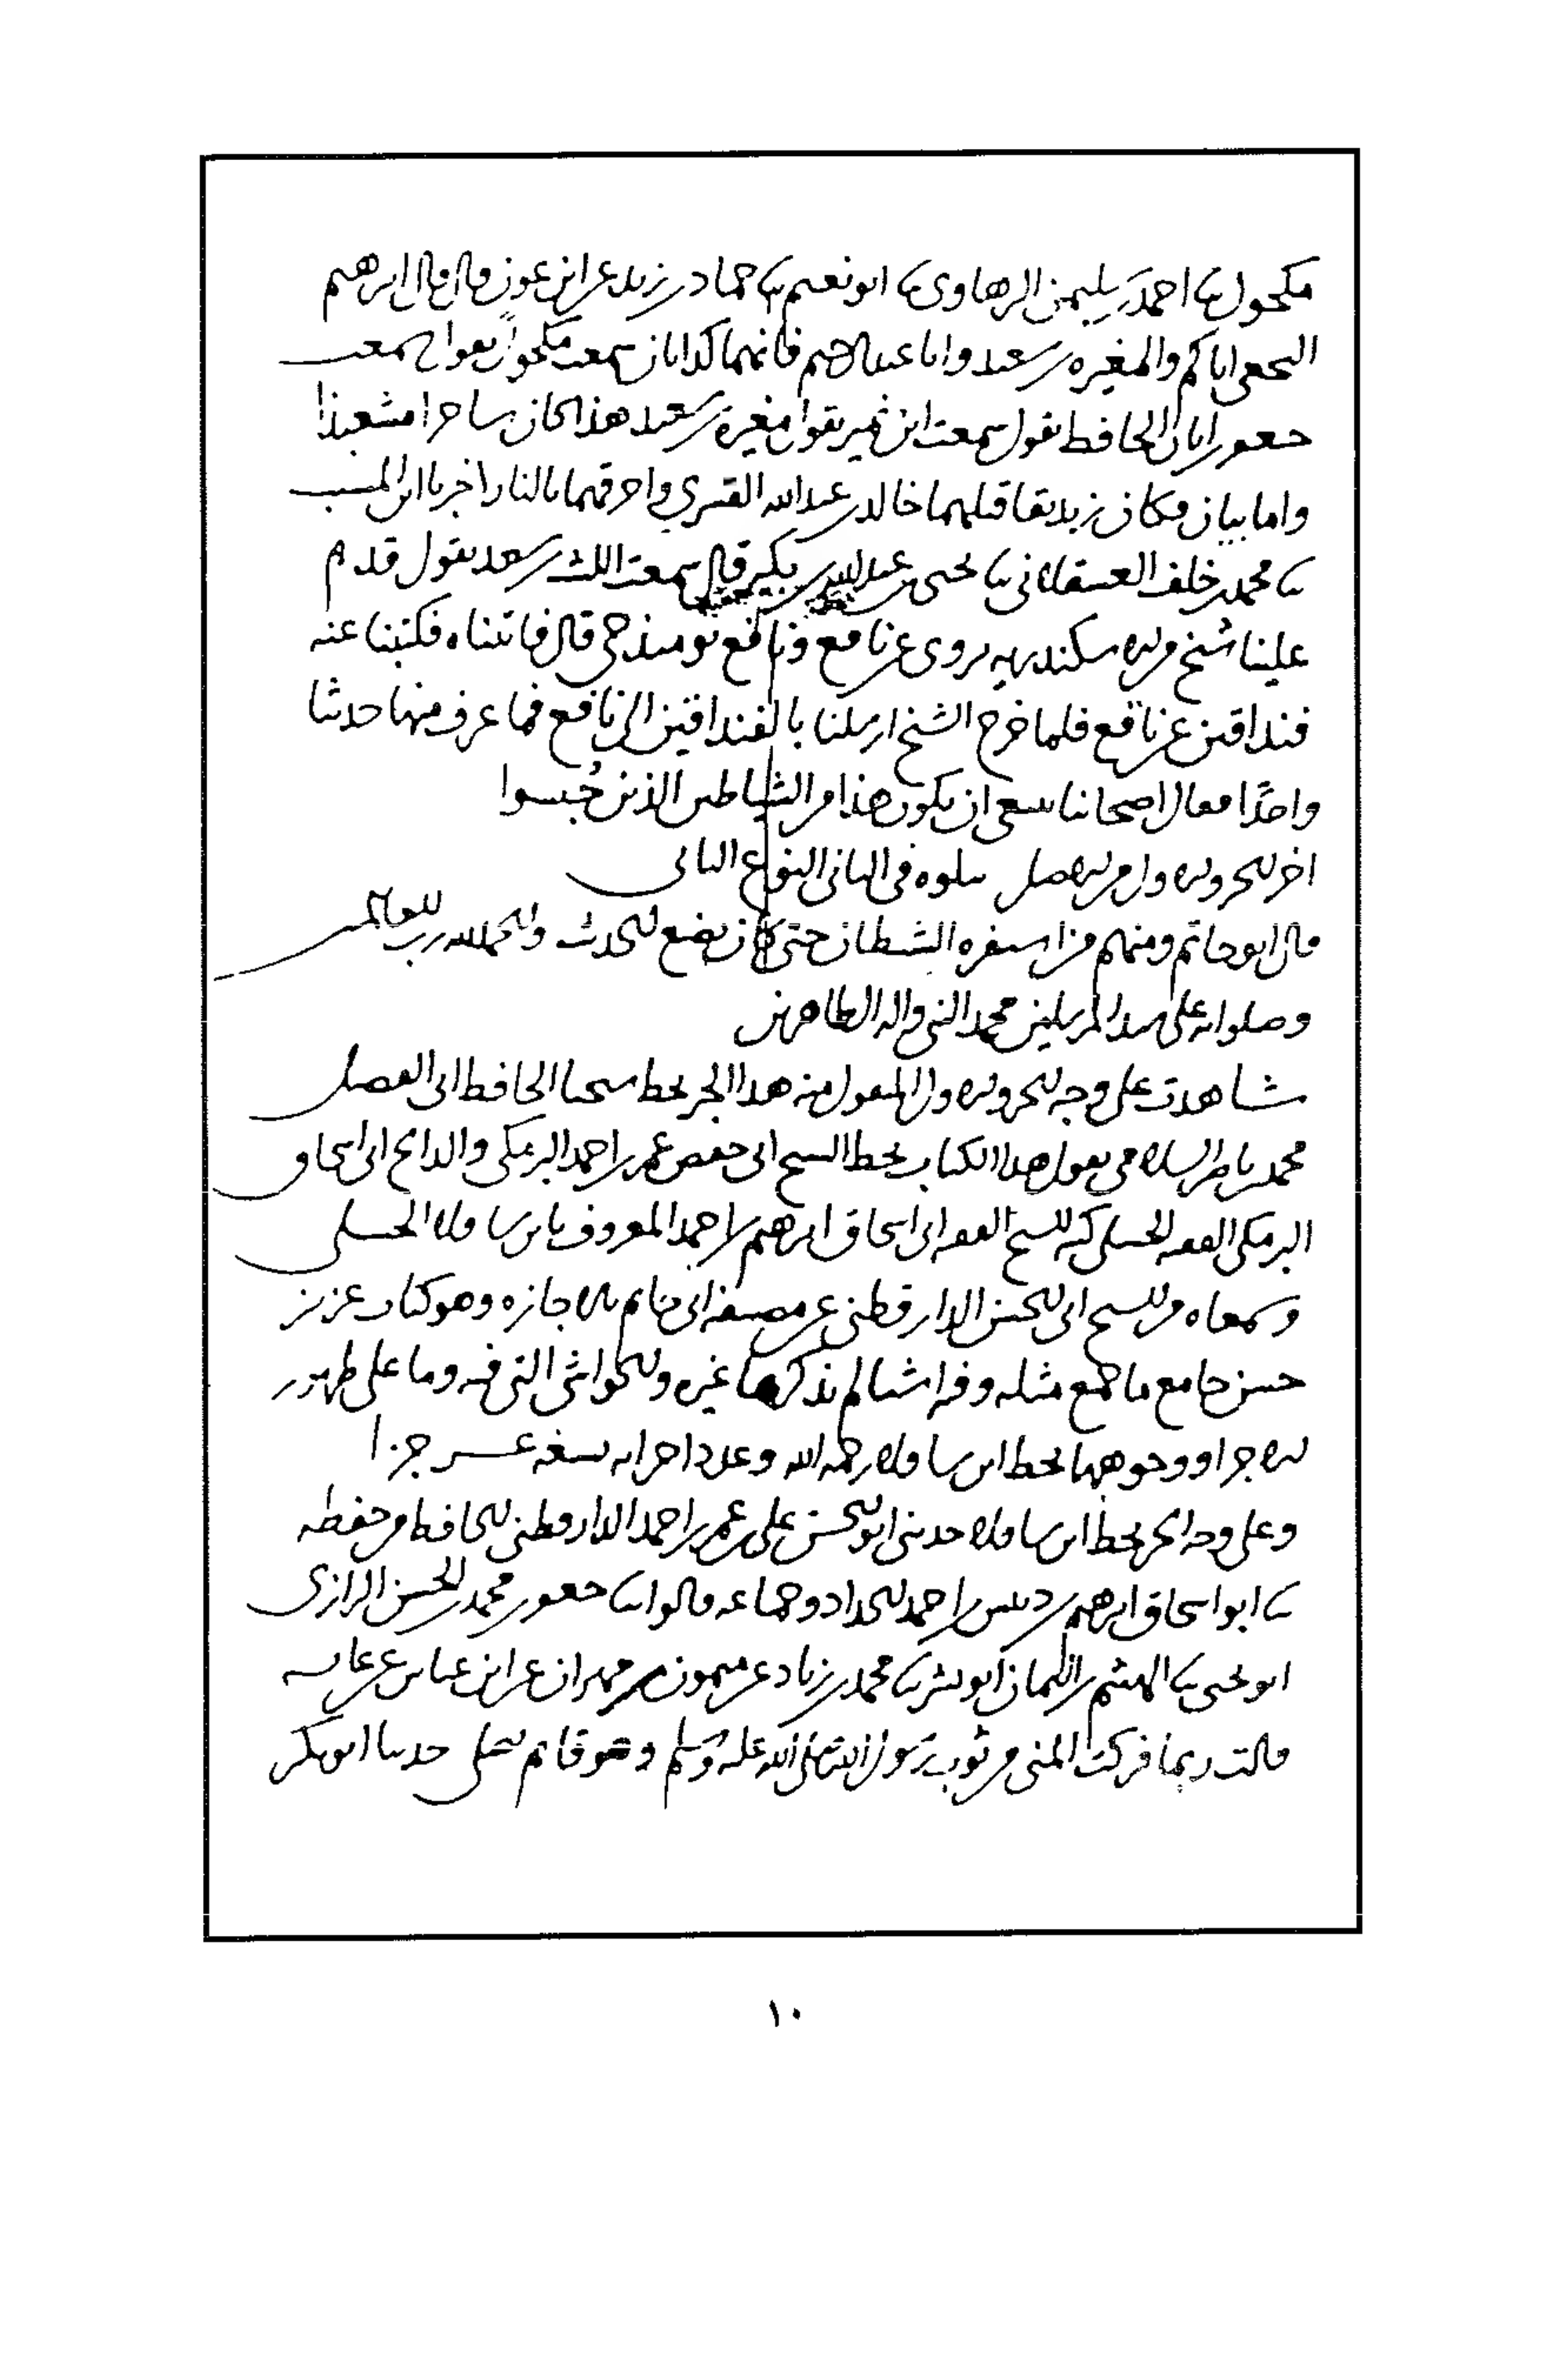 مكحول ثنا احمد بن سليمن الرهاوي ثنا ابو نعيم ثنا حماد بن زيد عن ابن عون قال قال ابرهيم
النخعي اياكم والمغيرة بن سعيد وابا عبد الرحيم فانهما كذابان سمعت مكحولا يقول سمعت
جعفر بن ابان الحافظ يقول سمعت ابن نمير يقول مغيرة بن سعيد هذا كان ساحرا مشعبذا
واما بيان فكان زنديقا قتلهما خالد بن عبد الله القسري واحرقهما بالنار اخبرنا ابن المسيب
ثنا محمد بن خلف العسقلاني ثنا يحيى بن عبد الله بن بكير قال سمعت الليث بن سعد يقول قدم
علينا شيخ من الاسكندرية يروي عن نافع ونافع يومئذ حي قال فاتيناه فكتبنا عنه
فنداقين عن نافع فلما خرج الشيخ ارسلنا بالفنداقين الى نافع فما عرف منها حديثا
واحدا فقال اصحابنا ينبغي ان يكون هذا من الشياطين الذين حُبسوا
اخر الجزو الاول من الاصل يتلوه في الثاني النوع الثاني
قال ابو حاتم ومنهم من استفزه الشيطان حتى كان يضع الحديث والحمد لله رب العالمين
وصلواته على سيد المرسلين محمد النبي واله الطاهرين
شاهدت على وجه الجزو الاول المنقول منه هذا الجزء بخط شيخنا الحافظ ابي الفضل
محمد بن ناصر السلامي يقول هذا الكتاب بخط الشيخ ابي حفص عمر بن احمد البرمكي والد الشيخ ابي اسحاق
البرمكي الفقيه الحنبلي كتبه للشيخ الفقيه ابي اسحاق ابرهيم بن احمد المعروف بابن شاقلا الحنبلي
وسمعاه من الشيخ ابي الحسن الدارقطني عن مصنفه ابي حاتم بالاجازه وهو كتاب عزيز
حسن جامع ما جمع مثله وفيه اشيا لم يذكرها غيره والحواشي التي فيه وما على ظهور
الاجزاء ووجوهها بخط ابن شاقلا رحمه الله وعدد اجزائه تسعة عشر جزءا
وعلى وجه الجزء بخط ابن شاقلا حدثني ابو الحسن علي بن عمر بن احمد الدارقطني الحافظ من حفظه
ثنا ابو اسحاق ابرهيم بن دبيس بن احمد الحداد وجماعة قالوا ثنا جعفر بن محمد بن الحسن الرازي
ابو يحيى ثنا الهيثم بن اليمان ابو بشر ثنا محمد بن زياد عن ميمون بن مهران عن ابن عباس عن عايشه
قالت ربما فركت المني من ثوب رسول الله صلى الله عليه وسلم وهو قائم يصلي حدثنا ابو بكر
١٠